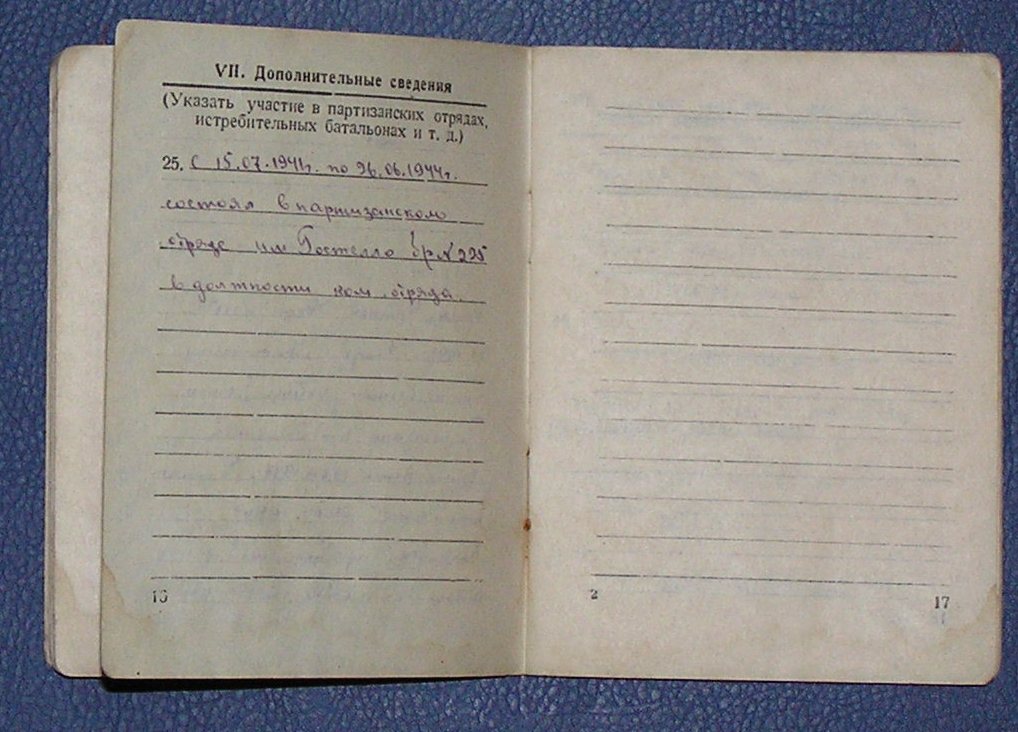 VII. Дополнительные сведения
(Указать участие в партизанских отрядах,
истребительных батальонах и т. д.)
25. С 15.07.1941г. по 26.06.1944г.
состоял в партизанском
отряде им Гостелло бр N 225
в должности ком. отряда.
16
2
17